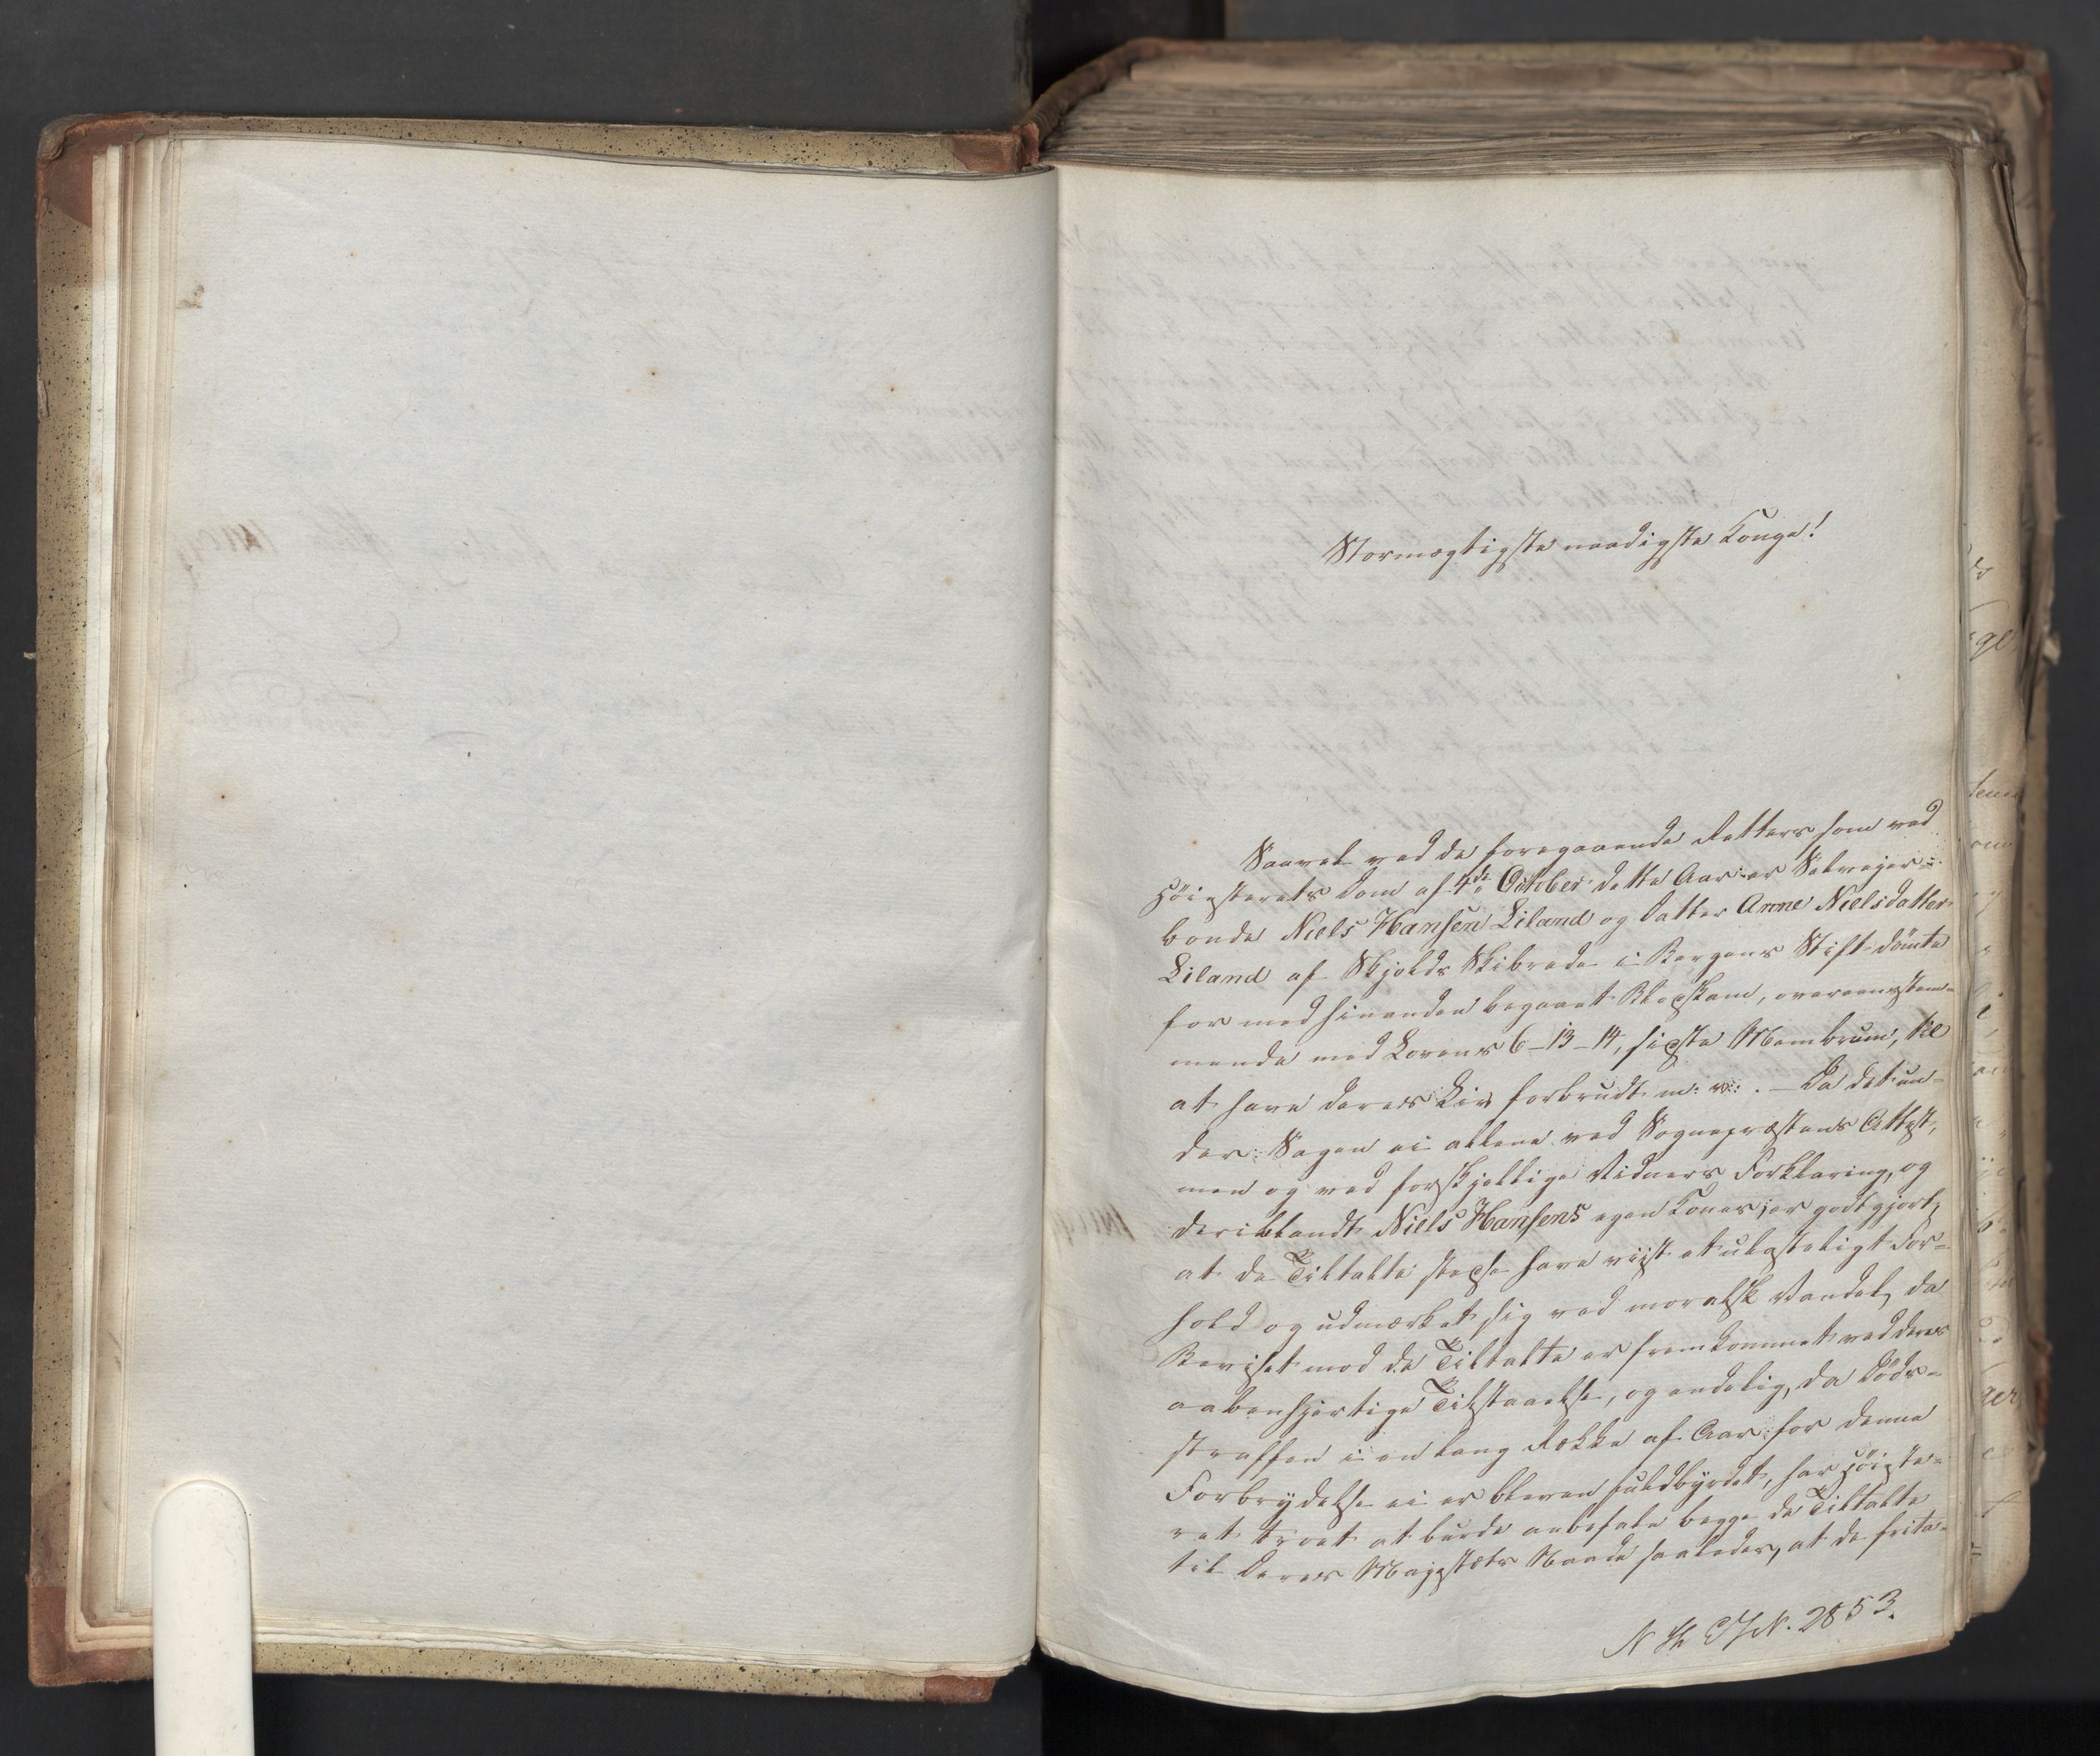 Stormægtigste naadigste Konge!
Saavel ved de foregaaende Retters som ved
Höiesterets Dom af 4de October dette Aar er Selveier-
bonde Niels Hansen Liland og Datter Anne Nielsdatter
Liland af Skjolds Skibrede i Bergens Stift dömte
for med hinanden begaaet Blodskam, overeensstem-
mende med Lovens 6-13-14, sidste Membrum, til
at have deres Liv forbrudt m: v: . — Da det un-
der Sagen ei allene ved Sognepræstens Attest,
men og ved forskjellige Vidners Forklaring, og
deriblandt Niels Hansens egen Kones, er godtgjort,
at de Tiltalte stedse have viist et ulasteligt For-
hold og udmærket sig ved moralsk Vandel, da
Beviset mod de Tiltalte er fremkommet ved deres
aabenhjertige Tilstaaelse, og endelig, da Döds-
straffen i en lang Række af Aar for denne
Forbrydelse ei er bleven fuldbyrdet, har Höieste-
ret troet at burde anbefale begge de Tiltalte
til Deres Majestæts Naade saaledes, at de frita-
N. 2853.